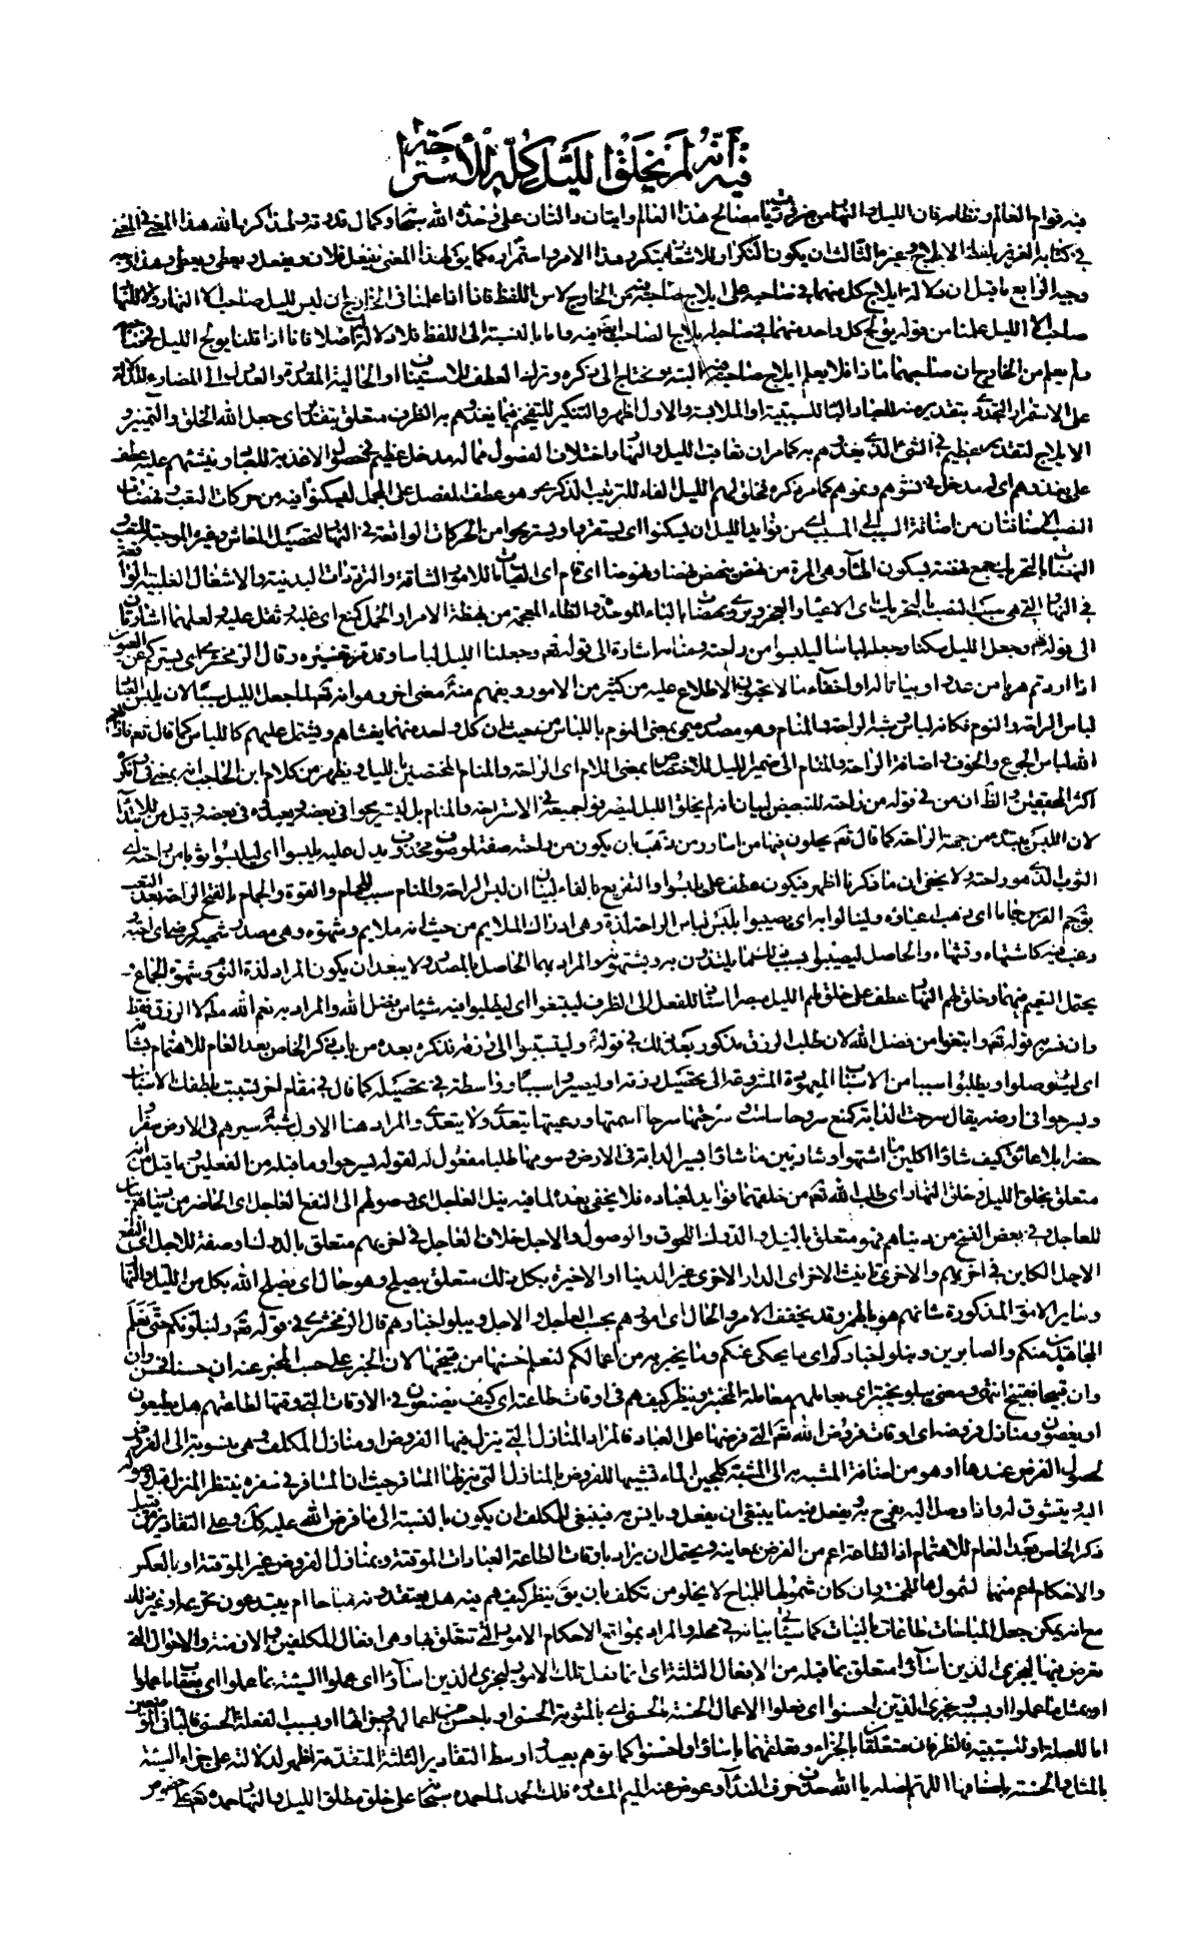 فيه انّه لم يخلق الليل كلّه للأستراحة
فيه قوام العالم و نظامه فان الليل و النهار من ضروريات مصالح هذا العالم و ايتان دالتان على وحدة الله سبحانه و كمال قدرته و لهذا كرر الله هذا المعنى
في كتابه العزيز بلفظ الايلاج و غيره الثالث ان يكون التكرار للاشعار بتكرر هذا الامر و استمراره كما يق لهذا المعنى يفعل فلان و يفعل و يعطى و يعطى و هذا وجيه
وجيه الرابع ما قيل ان دلالة ايلاج كل منهما في صاحبه على ايلاج صاحبه فيه من الخارج لا من اللفظ فانا اذا علمنا في الخارج ان ليس لليل صاحب الا النهار و لا للنهار
صاحب الا الليل علمنا من قوله يولج كل واحد منهما في صاحبه ايلاج لصاحب فيه و اما بالنسبة الى اللفظ فلا دلالة اصلا فانا اذا قلنا يولج الليل في
و لم يعلم من الخارج ان صاحبهما ماذا فلا يعلم ايلاج صاحبه فيه البتة و يحتاج الى ذكره و ترك العطف للاستيناف او الحالية المقدرة و العدول الى المضارع للدلالة
على الاستمرار التجددي بتقدير منه للعباد و الباء للسببية او الملابسة و الاول اظهر و التنكير للتفخيم فيما يغذوهم به الظرف متعلق بتقدير اى جعل الله الخلق و التمييز و
الايلاج لتقدير عظيم في الشئ الذي يغذوهم به كما مر ان تعاقب الليل و النهار و اختلاف الفصول مما له مدخل عظيم في حصول الاغذية للعباد و ينشئهم عليه عطف
على يغذوهم اى له مدخل في نشوهم و نموهم كما مر ذكره فخلق لهم الليل الفاء للترتيب الذكرى و هو عطف المفصل على المجمل ليسكنوا فيه من حركات التعب و نهضات
النصب الاضافتان من اضافة السبب الى المسبب اى من فوايد الليل ان يسكنوا اى يستقروا و يستريحوا من الحركات الواقعة في النهار لتحصيل المعاش و غيره الموجبة للتعب
النهضات بالتحريك جمع نهضة بسكون الهاء و هى المرة من نهض ينهض نهضا و نهوضا اى قام اى القيامات للامور الشاقة و الترددات البدنية و الاشغال القلبية الواقعة
في النهار التي هى سبب النصب بالتحريك اى الاعياء و العجز و يروى و بهضات بالباء الموحدة و الظاء المعجمة من بهظه الامر و الحمل كمنع اى غلبه و ثقل عليه و لعلهما اشارتان
الى قوله تعم و جعل الليل سكنا و جعله لباسا ليلبسوا من راحته و منامه اشارة الى قوله تعم و جعلنا الليل لباسا و قد مر تفسيره و قال الزمخشرى اى يستركم عن العيون
اذا اردتم هربا من عدو او بياتا له او اخفاء ما لا تحبون الاطلاع عليه من كثير من الامور و يفهم منه معنى اخر و هو انه تعم لما جعل الليل سببا لان يلبس الناس
لباس الراحة و النوم فكانه لباس و شبه الراحة و المنام و هو مصدر ميمي بمعنى النوم باللباس من حيث ان كل واحد منهما يغشاهم و يشتمل عليهم كاللباس كما قال تعم فاذاقها
الله لباس الجوع و الخوف و اضافة الراحة و المنام الى ضمير الليل للاختصاص بمعنى اللام اى الراحة و المنام المختصين بالليل و يظهر من كلام ابن الحاجب انه بمعنى في و انكره
اكثر المحققين و الظ ان من في قوله من راحته للتبعيض لبيان انه لم يخلق الليل ليصرفوا جميعه في الاستراحة و المنام بل ليستريحوا في بعضه و يعبدوه في بعضه و قيل من للابتداء
لان اللبس مبتدء من جهة الراحة كما قال تعم يحلون فيها من اساور من ذهب او ان يكون من راحته صفة لموصوف محذوف يدل عليه يلبسوا اى ليلبسوا ثوبا من راحته اى
الثوب الذى هو راحته و لا يخفى ان ما ذكرنا اظهر فيكون عطف على يلبسوا و التفريع بالفاء لبيان ان لبس الراحة و المنام سبب للجمام و القوة و الجمام بالفتح الراحة بعد التعب
يق جم الفرس جماما اى ذهب اعياؤه و لينالوا به اى يصيبوا بلبس لباس الراحة لذة و هى ادراك الملايم من حيث انه ملايم و شهوة و هى مصدر شهيه كرضيه اى احبه
و رغب فيه كاشتهاه و تشهاه و الحاصل ليصيبوا بسبب المنام ما يلتذون به و يشتهونه و المراد بهما الحاصل بالمصدر و لا يبعد ان يكون المراد لذة النوم و شهوة الجماع و
يحتمل التعميم فيهما و خلق لهم النهار عطف على خلق لهم الليل مبصرا اسناد للفعل الى الظرف ليبتغوا اى ليطلبوا فيه شيئا من فضل الله و المراد به نعم الله مطلقا لا الرزق فقط
و ان فسر به قوله تعم و ابتغوا من فضل الله لان طلب الرزق مذكور بعد ذلك في قوله و ليتسببوا الى رزقه فذكره بعده من باب ذكر الخاص بعد العام للاهتمام بشأنه
اى ليتوصلوا و يطلبوا سببا من الاسباب المعهودة المشروعة الى تحصيل رزقه او ليصيروا سببا و واسطة في تحصيله كما قال في مقام اخر تسببت بلطفك الاسباب
و يسرحوا في ارضه يقال سرحت الدابة كمنع سروحا سامت و سرحتها سرحا اسمتها و رعيتها يتعدى و لا يتعدى و المراد هنا الاول شبه سيرهم في الارض سفرا و
حضرا بلا عائق كيف شاؤا اكلين ما اشتهوا و شاربين ما شاؤا بسير الدابة في الارض و سومها طلبا مفعول له لقوله يسرحوا و ما قبله من الفعلين و ما قيل من انه
متعلق بخلق الليل و خلق النهار اى طلب الله تعم من خلقهما فوايد لعباده فلا يخفى بعده لما فيه نيل العاجل اى وصولهم الى النفع العاجل اى الحاضر من دنياهم
للعاجل و في بعض النسخ من دنياهم فهو متعلق بالنيل و الدرك اللحوق و الوصول و الاجل خلاف العاجل في اخريهم متعلق بالدرك او صفة للاجل اى النفع
الاجل الكاين في اخريهم و الاخرى تانيث الاخر اى الدار الاخرى غير الدنيا او الاخيرة بكل ذلك متعلق بيصلح و هو حال اى يصلح الله بكل من الليل و النهار
و ساير الامور المذكورة شانهم هو بالهمز و قد يخفف الامر و الحال اى امورهم بحسب العاجل و الاجل و يبلو اخبارهم قال الزمخشرى في قوله تعم و لنبلونكم حتى نعلم
المجاهدين منكم و الصابرين و نبلو اخباركم اى ما يحكى عنكم و ما يخبر به من اعمالكم لنعلم حسنها من قبيحها لان الخبر على حسب المخبر عنه ان حسنا فحسن و ان
و ان قبيحا فقبيح انتهى و معنى يبلو يختبر اى يعاملهم معاملة المختبر و ينظر كيف هم في اوقات طاعته اى كيف يصنعون في الاوقات التي وقتها لطاعتهم هل يطيعون
او يعصون و منازل فروضه اى اوقات فروض الله تعم التي فرضها على العباد فالمراد المنازل التي ينزل فيها الفروض او منازل المكلف و هى منسوبة الى الفروض
لحصول الفرض عندها او هو من اضافة المشبه به الى المشبه كلجين الماء تشبيها للفروض بالمنازل التي ينزلها المسافر حيث ان المسافر في سفره ينتظر المنزل قبل وصوله
اليه و يتشوق له و اذا وصل اليه يفرح به و يفعل فيه ما ينبغى ان يفعل و يانس به فينبغى للمكلف ان يكون بالنسبة الى ما فرض الله عليه كك و على التقادير من قبيل
ذكر الخاص بعد العام للاهتمام اذ الطاعة اعم من الفرض بمعانيه و يحتمل ان يراد باوقات الطاعة العبادات الموقتة و بمنازل الفروض غير الموقتة او بالعكس
و الاحكام اعم منهما لشمولها للخمسة و ان كان شمولها للمباح لا يخلو من تكلف بان يق ينظر كيف هم فيه هل يعتقدونه مباحا ام يعتقدون تحريمه او غير ذلك
مع انه يمكن جعل المباحات طاعات بالنيات كما سيأتي بيانه في محله و المراد بمواقع الاحكام الامور التي تتعلق بها و هى افعال المكلفين و الازمنة و الاحوال التي
تعرض فيها ليجزى الذين اساؤا متعلق بما قبله من الافعال الثلثة اى انما فعل تلك الامور ليجزى الذين اساؤا اى عملوا السيئة بما عملوا اى بعقاب ما عملوا
او بمثل ما عملوا او بسببه و يجزى الذين احسنوا اى فعلوا الاعمال الحسنة بالحسنى اى بالمثوبة الحسنى او باحسن من اعمالهم و جزائها او بسبب الفعلة الحسنى فالباء في الموضعين
اما للصلة او للسببية فالظرفان متعلقان بالجزاء و تعلقهما باساؤا و احسنوا كما توهم بعيد و اوسط التقادير الثلثة المتقدمة اظهر لدلالته على جزاء السيئة
بالمثل و الحسنة باضعافها اللهم اصله يا الله حذف حرف النداء و عوض عنه الميم المشددة فلك الحمد لما حمده سبحانه على خلق مطلق الليل و النهار حمده تعم على خصوص